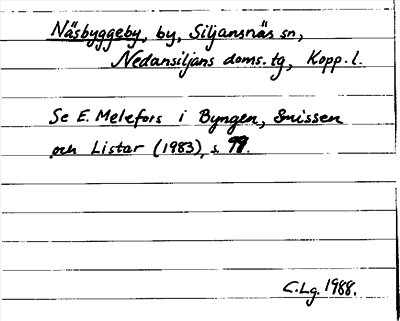 Näsbyggeby, by, Siljansnäs sn,
Nedansiljans doms. tg, Kopp. l.
Se E. Melefors i Byngen, Snissen
och Listar (1983), s. 99.
C. Lg. 1988.